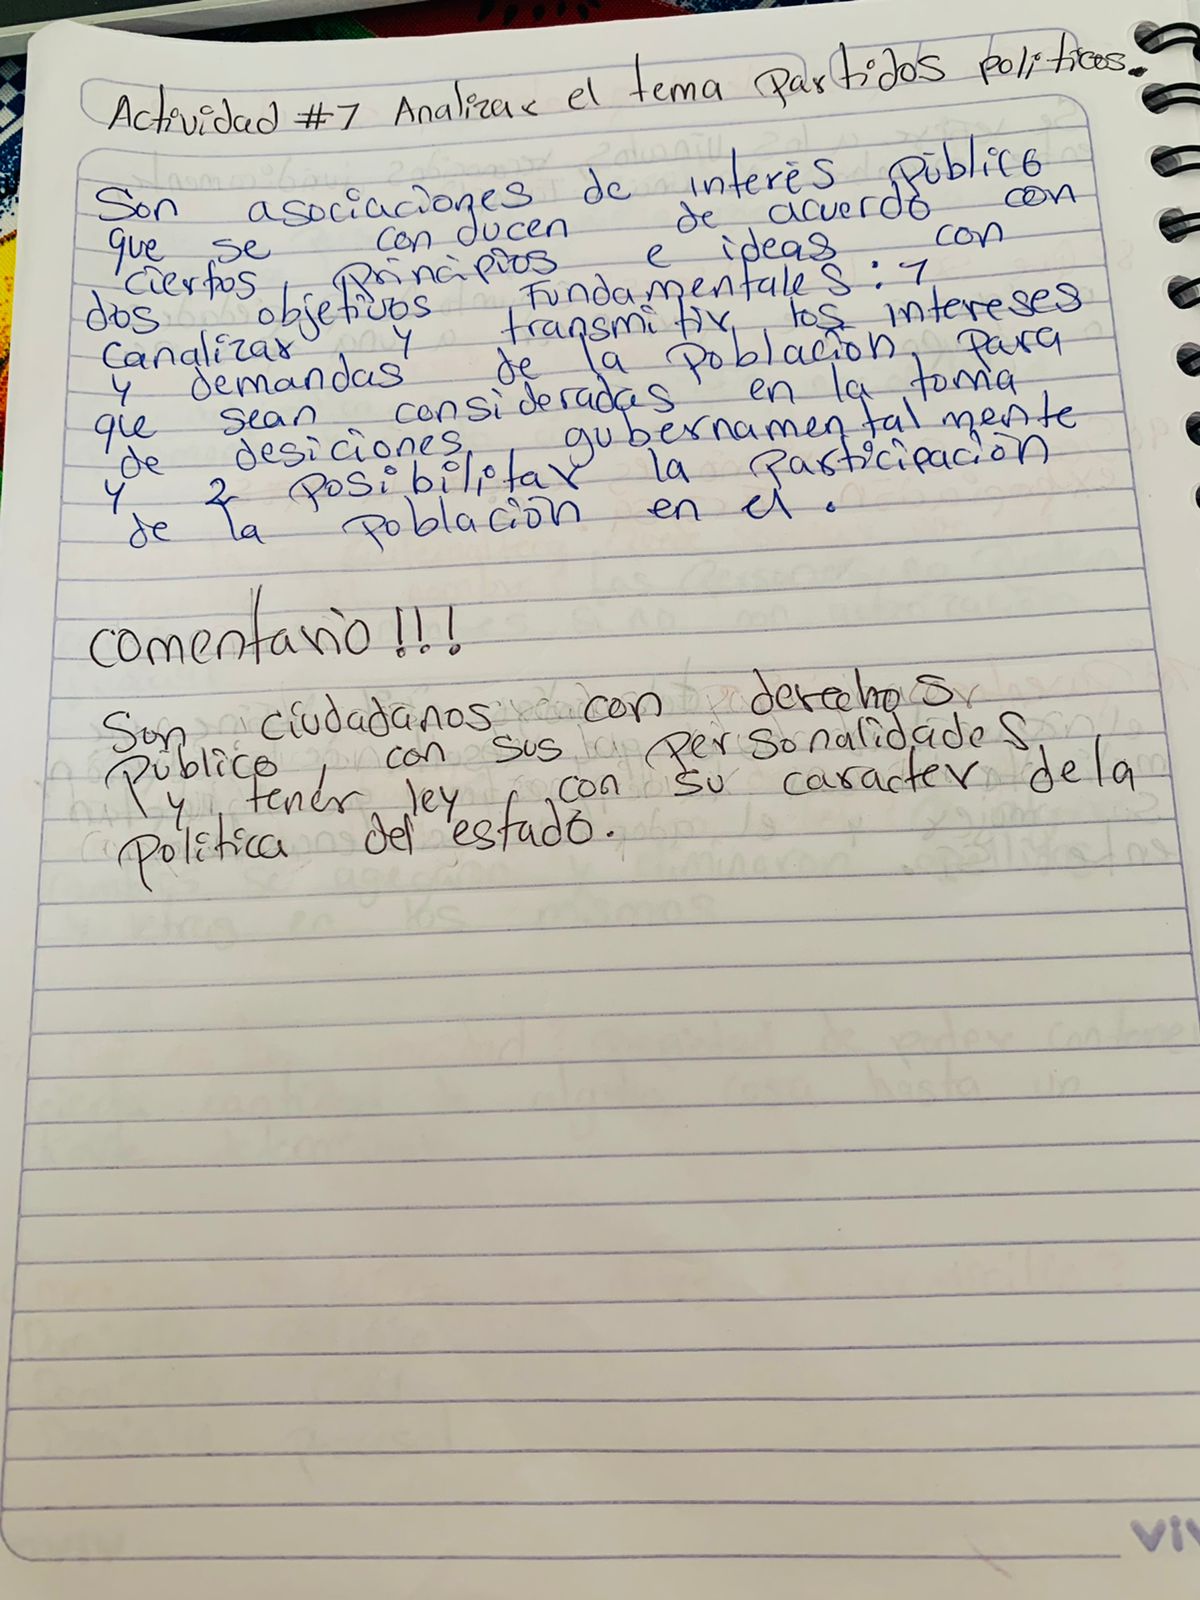 Actividad #7 Analizar el tema Partidos politicos.
Son asociaciones de interés público
que se conducen de acuerdo con
ciertos principios e ideas con
dos objetivos Fundamentales: 1
canalizar y transmitir los intereses
y demandas de la Población, para
que sean consideradas en la toma
de desiciones gubernamentalmente
y 2 Posibilitar la Participación
de la Población en el.
comentario!!!
Son ciudadanos con derechos
Público, con sus personalidades,
y tener ley, con su caracter de la
Política del estado.
viv